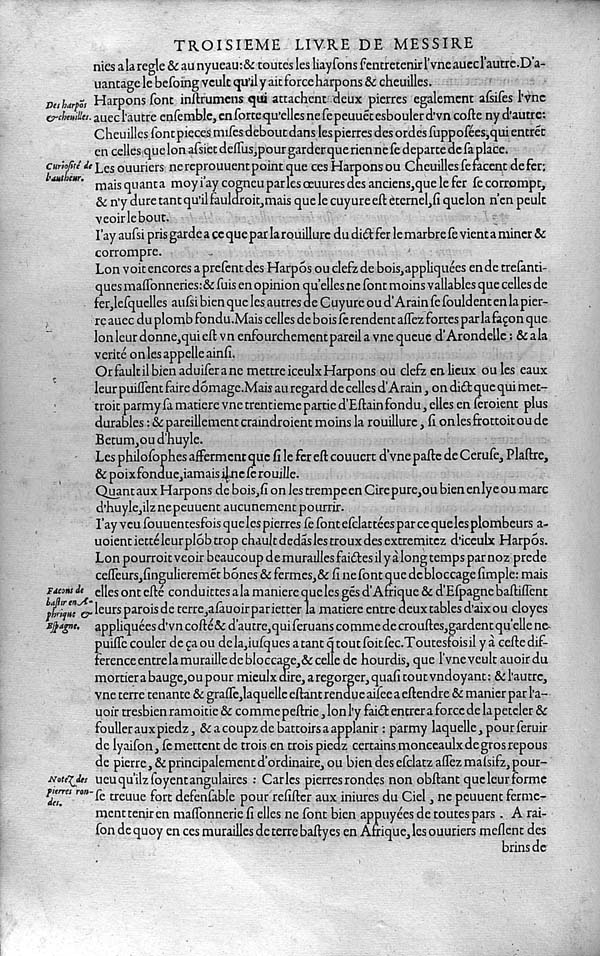 TROISIEME LIVRE DE MESSIRE
nies a la regle & au nyueau: & toutes les liaysons s'entretenir l'vne auec l'autre. D'a-
uantage le besoing veult qu'il y ait force harpons & cheuilles.
Des harpõs
& cheuilles.
Harpons sont instrumens qui attachent deux pierres egalement assises l'vne
auec l'autre ensemble, en sorte qu'elles ne se peuuẽt esbouler d'vn coste ny d'autre:
Cheuilles sont pieces mises debout dans les pierres des ordes supposées, qui entrẽt
en celles que lon assiet dessus, pour garder que rien ne se departe de sa place.
Curiosité de
l'autheur.
Les ouuriers ne reprouuent point que ces Harpons ou Cheuilles se facent de fer:
mais quant a moy i'ay cogneu par les œuures des anciens, que le fer se corrompt,
& n'y dure tant qu'il fauldroit, mais que le cuyure est eternel, si que lon n'en peult
veoir le bout.
I'ay aussi pris garde a ce que par la rouillure du dict fer le marbre se vient a miner &
corrompre.
Lon voit encores a present des Harpõs ou clefz de bois, appliquées en de tresanti-
ques massonneries: & suis en opinion qu'elles ne sont moins vallables que celles de
fer, lesquelles aussi bien que les autres de Cuyure ou d'Arain se souldent en la pier-
re auec du plomb fondu. Mais celles de bois se rendent assez fortes par la façon que
lon leur donne, qui est vn enfourchement pareil a vne queue d'Arondelle: & a la
verité on les appelle ainsi.
Or fault il bien aduiser a ne mettre iceulx Harpons ou clefz en lieux ou les eaux
leur puissent faire dõmage. Mais au regard de celles d'Arain, on dict que qui met-
troit parmy sa matiere vne trentieme partie d'Estain fondu, elles en seroient plus
durables: & pareillement craindroient moins la rouillure, si on les frottoit ou de
Betum, ou d'huyle.
Les philosophes afferment que si le fer est couuert d'vne paste de Ceruse, Plastre,
& poix fondue, iamais il ne se rouille.
Quant aux Harpons de bois, si on les trempe en Cire pure, ou bien en lye ou marc
d'huyle, ilz ne peuuent aucunement pourrir.
I'ay veu souuentesfois que les pierres se sont esclattées par ce que les plombeurs a-
uoient ietté leur plõb trop chault dedãs les troux des extremitez d'iceulx Harpõs.
Lon pourroit veoir beaucoup de murailles faictes il y à long temps par noz prede
cesseurs, singulieremẽt bõnes & fermes, & si ne sont que de blocage simple: mais
Facons de
bastir en A-
phrique &
Espagne.
elles ont esté conduittes a la maniere que les gẽs d'Afrique & d'Espagne bastissent
leurs parois de terre, asauoir par ietter la matiere entre deux tables d'aix ou cloyes
appliquées d'vn costé & d'autre, qui seruans comme de croustes, gardent qu'elle ne
puisse couler de ça ou de la, iusques a tant q̃ tout soit sec. Toutesfois il y à ceste dif-
ference entre la muraille de bloccage, & celle de hourdis, que l'vne veult auoir du
mortier a bauge, ou pour mieulx dire, a regorger, quasi tout vndoyant: & l'autre,
vne terre tenante & grasse, laquelle estant rendue aisee a estendre & manier par l'a-
uoir tresbien ramoitie & comme pestrie, lon l'y faict entrer a force de la peteler &
fouller aux piedz, & a coupz de battoirs a applanir: parmy laquelle, pour seruir
de lyaison, se mettent de trois en trois piedz certains monceaulx de gros repous
de pierre, & principalement d'ordinaire, ou bien des esclatz assez massifz, pour-
Notez des
pierres ron-
des.
ueu qu'ilz soyent angulaires: Car les pierres rondes non obstant que leur forme
se treuue fort defensable pour resister aux iniures du Ciel, ne peuuent ferme-
ment tenir en massonnerie si elles ne sont bien appuyées de toutes pars. A rai-
son de quoy en ces murailles de terre bastyes en Afrique, les ouuriers meslent des
brins de